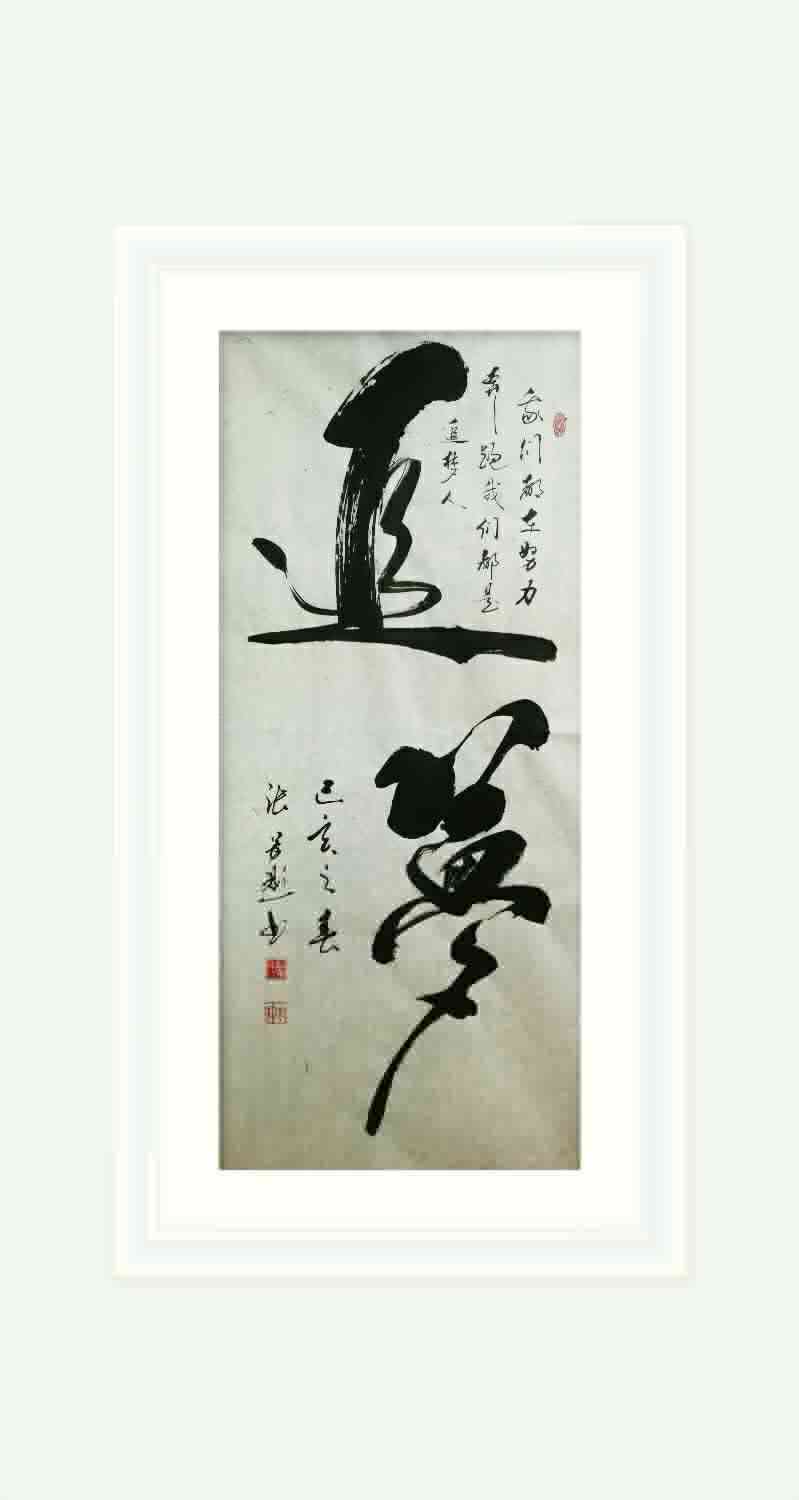 追梦
我们都在努力
奔跑我们都是
追梦人
己亥之春
张